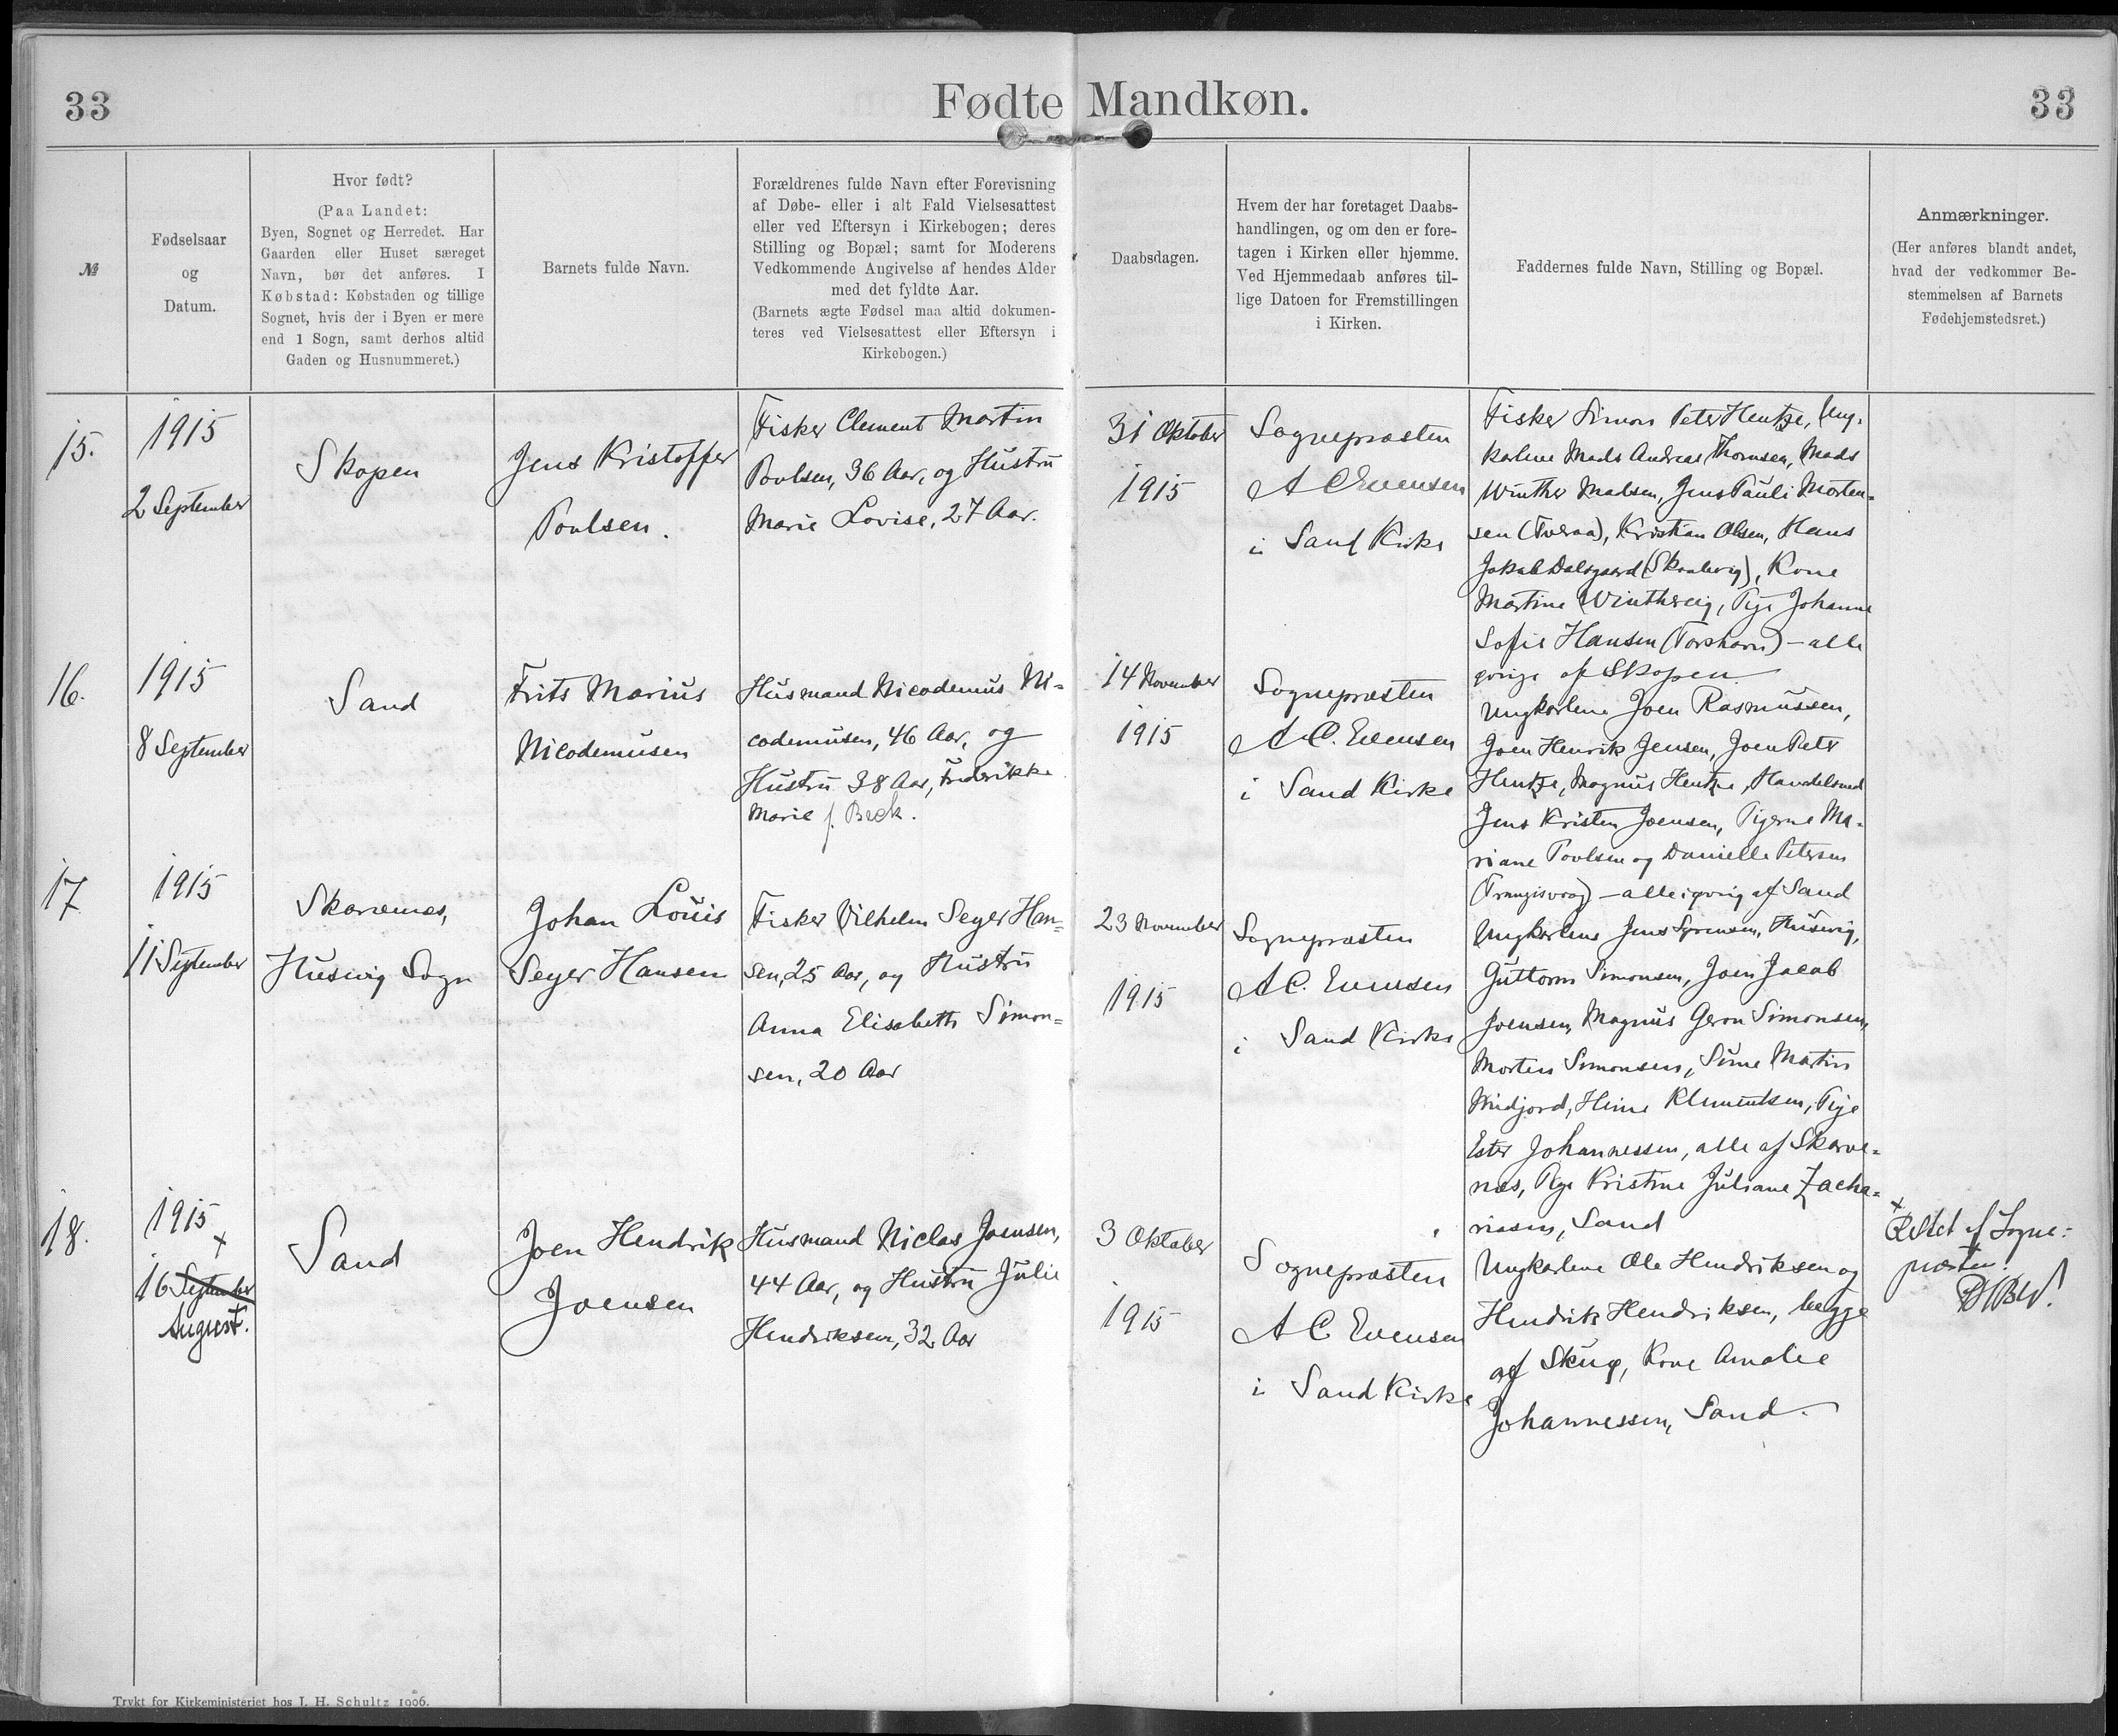 33
Fødte Mandkøn.
33
№
Fødselsaar
og
Datum.
Hvor født?
(Paa Landet:
Byen, Sognet og Herredet. Har
Gaarden eller Huset særeget
Navn, bør det anføres. I
Købstad: Købstaden og tillige
Sognet, hvis der i Byen er mere
end 1 Sogn, samt derhos altid
Gaden og Husnummeret.)
Barnets fulde Navn.
Forældrenes fulde Navn efter Forevisning
af Døbe- eller i alt Fald Vielsesattest
eller ved Eftersyn i Kirkebogen; deres
Stilling og Bopæl; samt for Moderens
Vedkommende Angivelse af hendes Alder
med det fyldte Aar.
(Barnets ægte Fødsel maa altid dokumen-
teres ved Vielsesattest eller Eftersyn i
Kirkebogen.)
Daabsdagen.
Hvem der har foretaget Daabs-
handlingen, og om den er fore-
tagen i Kirken eller hjemme.
Ved Hjemmedaab anføres til-
lige Datoen for Fremstillingen
i Kirken.
Faddernes fulde Navn, Stilling og Bopæl.
Anmærkninger.
(Her anføres blandt andet,
hvad der vedkommer Be-
stemmelsen af Barnets
Fødehjemstedsret.)
15.
1915
2 September
Skopen
Jens Kristoffer
Poulsen.
Fisker Clement Martin
Poulsen, 36 Aar, og Hustru
Marie Lovise, 27 Aar.
31 Oktober
1915
Sognepræsten
A C Evensen
i Sand Kirke
Fisker Simon Peter Hentze, Ung-
karlene Mads Andreas Thomsen, Mads
Winther Madsen, Jens Pauli Morten-
sen (Tveraa), Kristian Olsen, Hans
Jakob Dalsgaard (Skaalevig), Kone
Martine Winthereig, Pige Johanne
Sofie Hansen (Torshavn) - alle
øvrige af Skopen
16.
1915
8 September
Sand
Frits Marius
Nicodemusen
Husmand Nicodemus Ni-
codemusen, 46 Aar, og
Hustru 38 Aar, Frederikke
Marie f. Beck.
14 November
1915
Sognepræsten
A C. Evensen
i Sand Kirke
Ungkarlene Joen Rasmussen,
Joen Henrik Jensen, Joen Peter
Hentze, Magnus Hentze, Handelsmd
Jens Kristen Joensen, Pigerne Ma-
riane Poulsen og Danielle Petersen
(Trangisvaag) - alle øvrig af Sand
17
1915
11 September
Skarvenes,
Husevig Sogn
Johan Louis
Sejer Hansen
Fisker Vilhelm Sejer Han-
sen, 25 Aar, og Hustru
Anna Elisabeth Simon-
sen, 20 Aar
23 November
1915
Sognepræsten
A C. Evensen
i Sand Kirke
Ungkarlene Jens Sørensen, Husevig,
Guttorm Simonsen, Joen Jacob
Joensen, Magnus Simonsen,
Morten Simonsen, Martin
Midjord, Heine Klementsen, Pige
Ester Johannessen, alle af Skarve-
næs, Pige Kristine Juliane Zacha-
riasen, Sand
18.
1915
x
16 September
August.
Sand
Joen Hendrik
Joensen
Husmand Niclas Joensen,
44 Aar, og Hustru Julie
Hendriksen, 32 Aar
3 Oktober
1915
Sognepræsten
A C Evensen
i Sand Kirke
Ungkarlene Ole Hendriksen og
Hendrik Hendriksen, begge
af Skuø, Kone Amalie
Johannessen, Sand.
x
Rettet af Sogne-
præsten.
Trykt for Kirkeministeriet hos J. H. Schultz 1906.